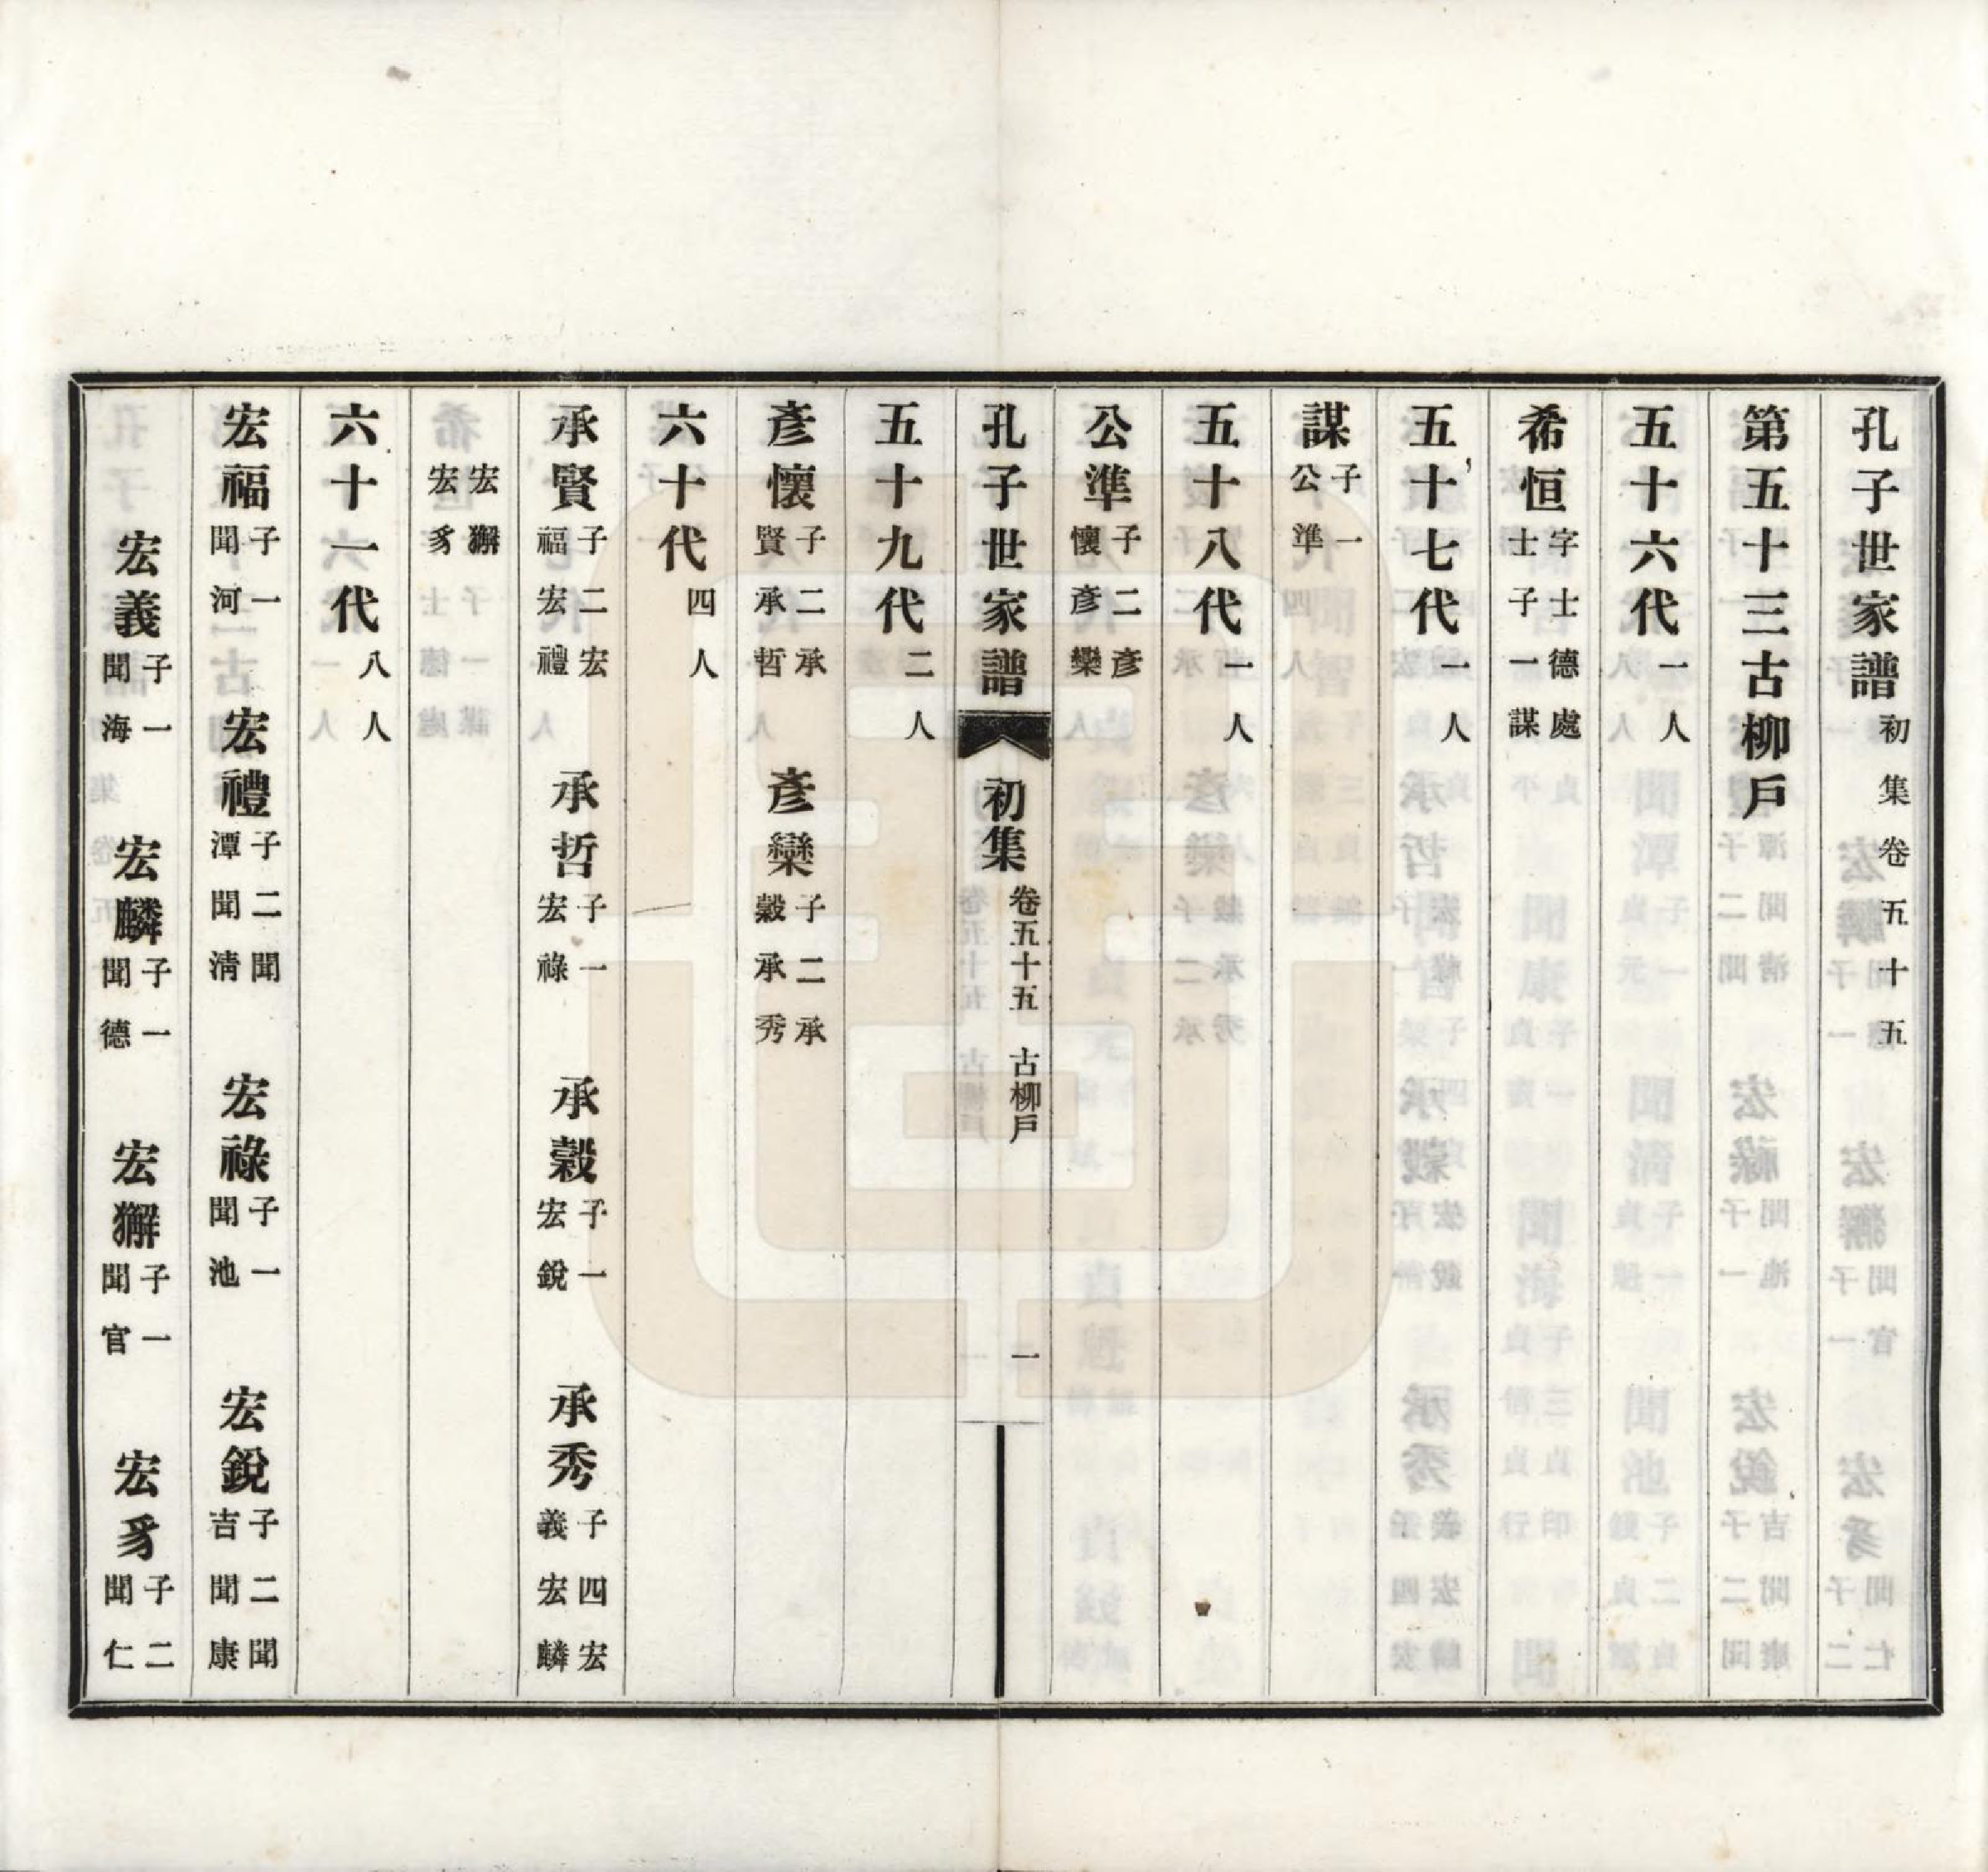 孔子世家譜初集卷五十五
第五十三古柳戶
五十六代一人
希恒字士德處士子一謀
五十七代一人
謀子一公準
五十八代一人
公準子二彥懷彥欒
孔子世家譜 初集 卷五十五 古柳戶 一
五十九代二人
彥懷子二承賢承哲 彥欒子二承穀承秀
六十代四人
承賢子二宏福宏禮 承哲子一宏祿 承穀子一宏銳 承秀子四宏義宏麟
宏獬宏豸
六十一代八人
宏福子一聞河 宏禮子二聞潭聞清 宏祿子一聞池 宏銳子二聞吉聞康
宏義子一聞海 宏麟子一聞德 宏獬子一聞官 宏豸子二聞仁